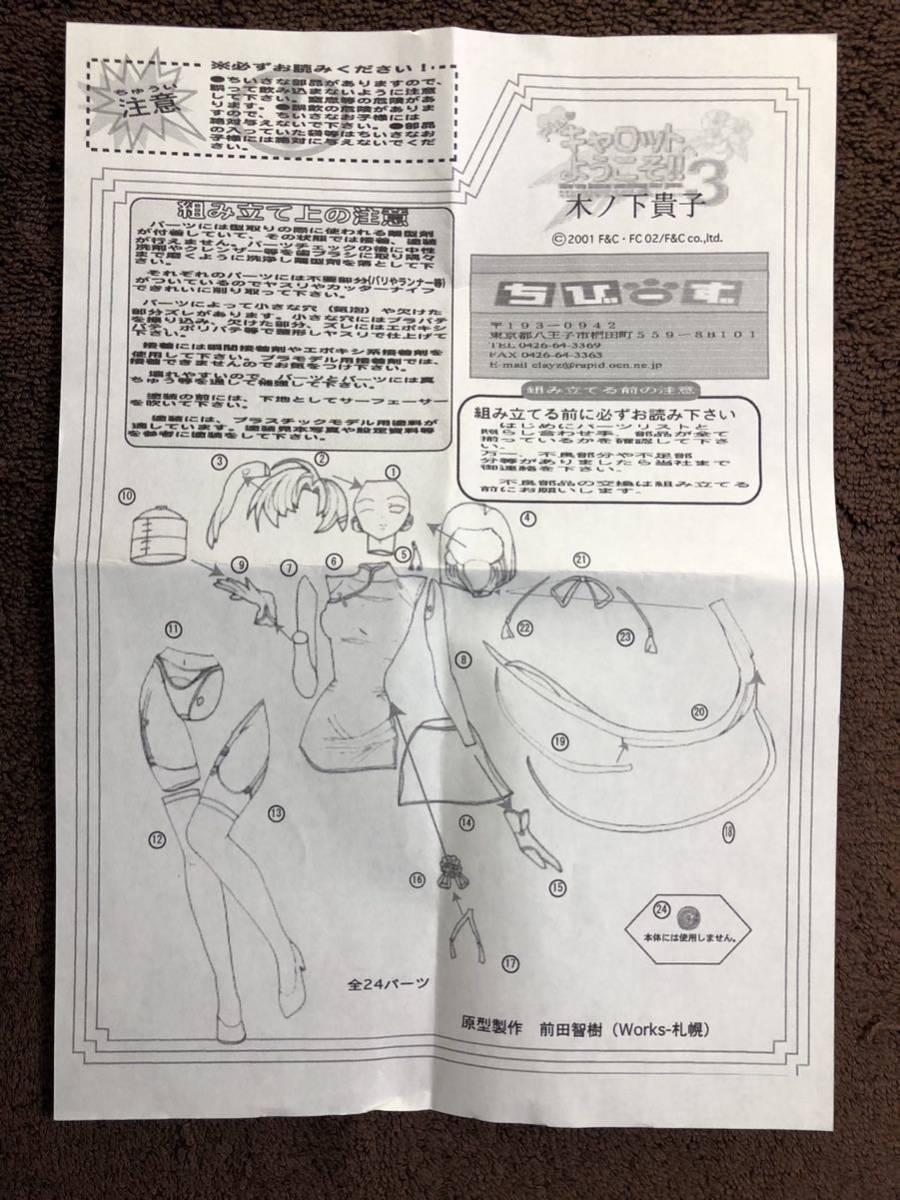 ※必ずお読みください！
ちゅうい
注意
●ちいさな部品がありますので、
誤って飲み込まないように注意
して下さい。窒息等の危険があ
ります。●誤飲の危険がありま
すので、ちいさなお子様には
絶対与えないで下さい。●部品
の入っていた袋等はちいさなお
子様には絶対に与えないでくだ
さい。
キャロット
ようこそ!!
3
木ノ下貴子
©2001 F&C・FC 02/F&C co.,ltd.
ちびーず
〒193-0942
東京都八王子市椚田町559-8B101
TEL 0426-64-3369
FAX 0426-64-3363
E-mail clayz@rapid.ocn.ne.jp
組み立て上の注意
パーツには型取りの際に使われる離型剤
が付着していて、その状態では接着、塗装
が行えません。パーツチェックの後に中性
洗剤やクレンザー等を歯ブラシに取り隅々
まで磨くように洗浄し離型剤を落として下
さい。
それぞれのパーツには不要部分(バリやランナー等)
がついているのでヤスリやカッターナイフ
できれいに削り取って下さい。
パーツによって小さな穴（気泡）や欠けた
部分ズレがあります。小さな穴にはプラパテ
を擦り込み、欠けた部分、ズレにはエポキシ
パテ、ポリパテで整形しヤスリで仕上げて
下さい。
接着には瞬間接着剤やエポキシ系接着剤を
使用して下さい。プラモデル用接着剤では、
接着できませんのでお気をつけ下さい。
壊れやすいので、パーツとパーツには真
ちゅう等を通して補強して下さい。
塗装の前には、下地としてサーフェーサー
を吹いて下さい。
塗装には、プラスチックモデル用塗料が
適しています。塗装見本写真や設定資料等
を参考に塗装をして下さい。
組み立てる前の注意
組み立てる前に必ずお読み下さい
はじめにパーツリストと
照らし合わせ手、部品が全て
揃っているかを確認して下さ
い。
万一、不良部分や不足部
分等がありましたら当社まで
御連絡を下さい。
不良部品の交換は組み立てる
前にお願いします。
①
②
③
④
⑤
⑥
⑦
⑧
⑨
⑩
⑪
⑫
⑬
⑭
⑮
⑯
⑰
⑱
⑲
⑳
㉑
㉒
㉓
㉔
本体には使用しません。
全24パーツ
原型製作　前田智樹（Works-札幌）